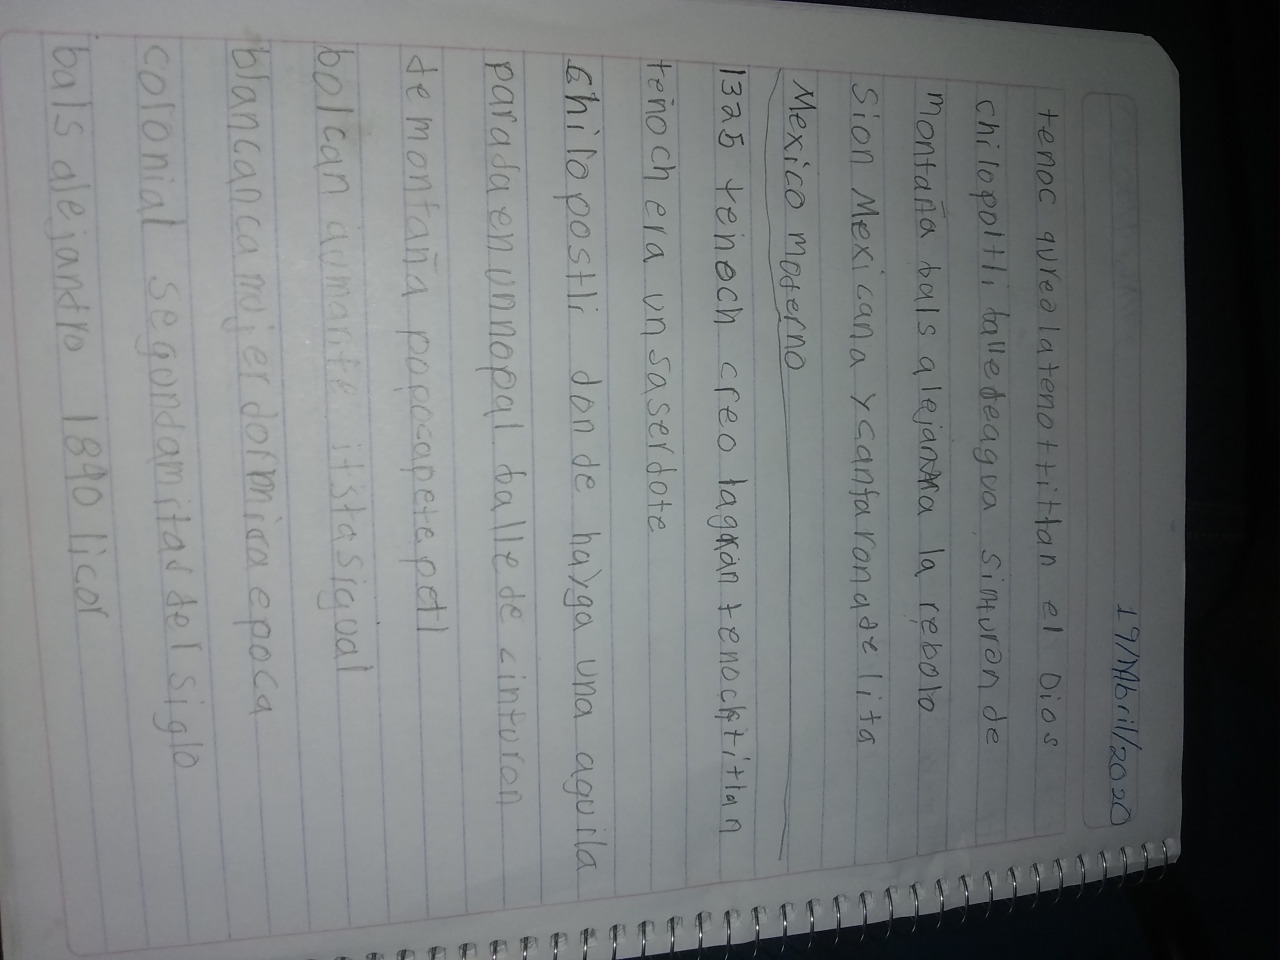 19/Abril/2020
tenoc qureo la tenottitlan el Dios
chilopoltli balle de agua sinturon de
montaña bals alejandra la rebolo
sion Mexicana y cantaron adelita
Mexico moderno
1325 tenoch creo la gran tenochtitlan
tenoch era un saserdote
chilopostli donde hayga una aguila
parada en un nopal balle de cinturon
de montaña popocapetepetl
bolcan aumante itstasigual
blancanca mujer dormida epoca
colonial segundamitad del siglo
bals alejandro 1890 licor